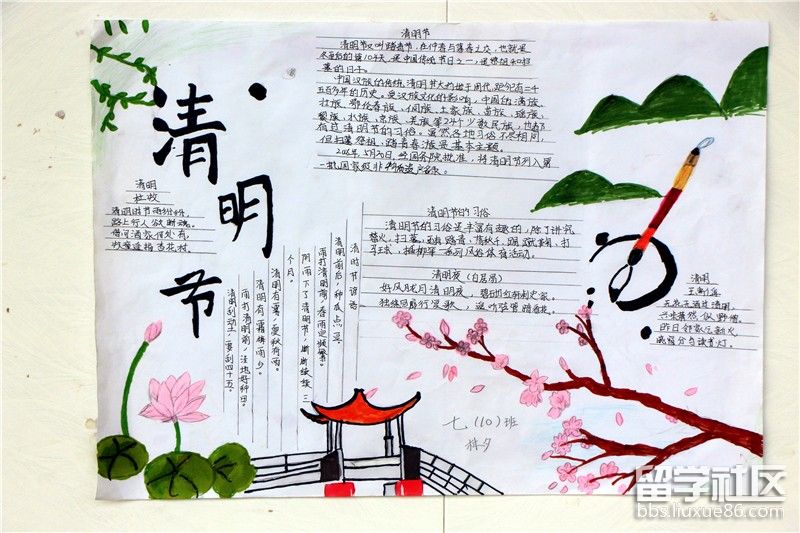 清明节
清明节
清明节又叫踏青节，在仲春与暮春之交，也就是
冬至后的第104天，是中国传统节日之一，也是祭祖和扫
墓的日子。
中国汉族的传统清明节大约始于周代，距今已有二千
五百多年的历史。受汉族文化的影响，中国的满族、
壮族、鄂伦春族、侗族、土家族、苗族、瑶族、
黎族、水族、京族、羌族等24个少数民族，也都
有过清明节的习俗。虽然各地习俗不尽相同，
但扫墓祭祖、踏青春游是基本主题。
2006年5月20日，经国务院批准，将清明节列入第
一批国家级非物质遗产名录。
清明
杜牧
清明时节雨纷纷，
路上行人欲断魂。
借问酒家何处有，
牧童遥指杏花村。
清明节的习俗
清明节的习俗是丰富有趣的，除了讲究
禁火、扫墓，还有踏青、荡秋千、蹴鞠、打
马球、插柳等一系列风俗体育活动。
清明夜（白居易）
好风胧月清明夜，碧砌红轩刺史家。
独绕回廊行复歇，遥听弦管暗看花。
清明
王禹偁
无花无酒过清明，
兴味萧然似野僧。
昨日邻家乞新火，
晓窗分与读书灯。
清明节谚语
清明前后，种瓜点豆。
雨打清明前，春雨定频繁。
阴雨下了清明节，断断续续三
个月。
清明有雾，夏秋有雨。
清明有霜梅雨少。
雨打清明前，洼地好种田。
清明刮动土，要刮四十五。
七（10）班
留学社区
bbs.liuxue86.com